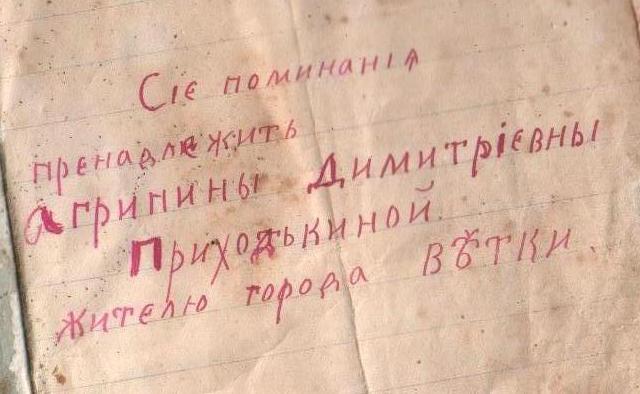 Сіє поминанія
пренадлежить
агрипины Димитрієвны
Приходькиной.
жителю города Вѣтки.